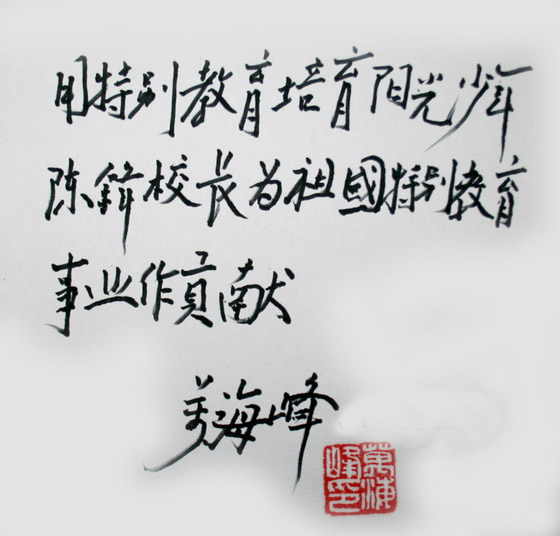 用特别教育培育阳光少年
陈锋校长为祖國特别教育
事业作贡献
万海峰
萬海
峰印